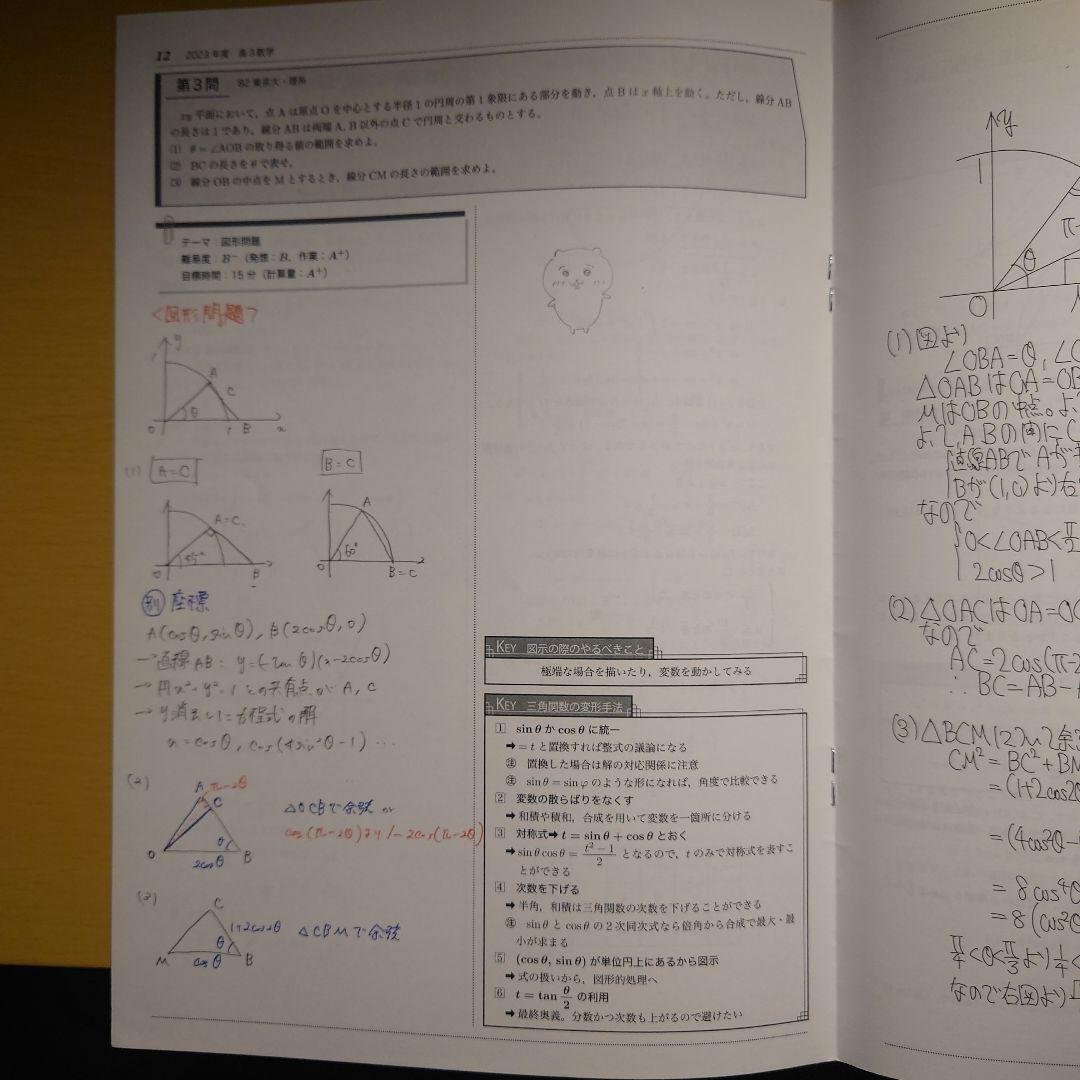 12 2023年度 高3数学
第3問 '82 東京大・理系
xy平面において，点Aは原点Oを中心とする半径1の円周の第1象限にある部分を動き，点Bはx軸上を動く。ただし，線分AB
の長さは1であり，線分ABは両端A, B以外の点Cで円周と交わるものとする。
(1) θ=∠AOBの取り得る値の範囲を求めよ。
(2) BCの長さをθで表せ。
(3) 線分OBの中点をMとするとき，線分CMの長さの範囲を求めよ。
テーマ：図形問題
難易度：B⁻（発想：B, 作業：A⁺）
目標時間：15分（計算量：A⁺）
<図形問題>
y
A
C
θ
O 1 B x
(1) A=C
B=C
A=C
45°
O B
A
60°
O B=C
別 座標
A(cosθ, sinθ), B(2cosθ, 0)
→直線AB: y=(-tanθ)(x-2cosθ)
→円x²+y²=1との共有点がA, C
→y消去した方程式の解
x=cosθ, cosθ(4sin²θ-1) …
(2)
A π-2θ
C
θ
O B
2cosθ
△OCBで余弦 or
cos(π-2θ)より1-2cos(π-2θ)
(3)
C
1+2cos2θ
θ
M B
cosθ
△CBMで余弦
KEY 図示の際のやるべきこと
極端な場合を描いたり，変数を動かしてみる
KEY 三角関数の変形手法
1 sinθかcosθに統一
➡=tと置換すれば整式の議論になる
注 置換した場合は解の対応関係に注意
注 sinθ=sinφのような形になれば，角度で比較できる
2 変数の散らばりをなくす
➡和積や積和，合成を用いて変数を一箇所に分ける
3 対称式➡t=sinθ+cosθとおく
➡sinθcosθ=(t²-1)/2となるので，tのみで対称式を表すこ
とができる
4 次数を下げる
➡半角，和積は三角関数の次数を下げることができる
注 sinθとcosθの2次同次式なら倍角から合成で最大・最
小が求まる
5 (cosθ, sinθ)が単位円上にあるから図示
➡式の扱いから，図形的処理へ
6 t=tan θ/2 の利用
➡最終奥義。分数かつ次数も上がるので避けたい
y
1
θ
O
(1)図より
∠OBA=θ, ∠O
△OABはOA=OB
MはOBの中点。よ
よて,ABの間にC
直線ABでAが
Bが(1,0)より右
なので
0<∠OAB<π/2
2cosθ>1
(2)△OACはOA=OC
なので
AC=2cos(π-2
∴BC=AB-A
(3)△BCMについて余弦
CM²=BC²+BM
=(1+2cos2θ
=(4cos²θ-
=8cos⁴θ
=8(cos²θ
π/4<θ<π/3より1/4<
なので右図より